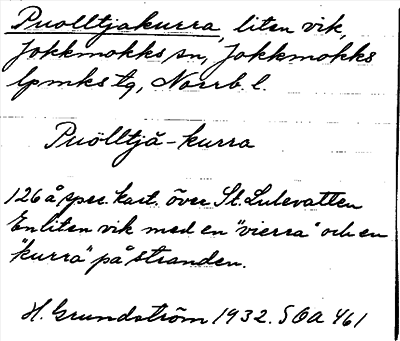 Puolltjakurra, liten vik,
Jokkmokks sn, Jokkmokks
lpmks tg, Norrb. l.
Puölltjå-kurra
126 å spec. kart. över St. Lulevatten
En liten vik med en "vierra" och en
"kurra" på stranden.
H. Grundström 1932. SOA 461